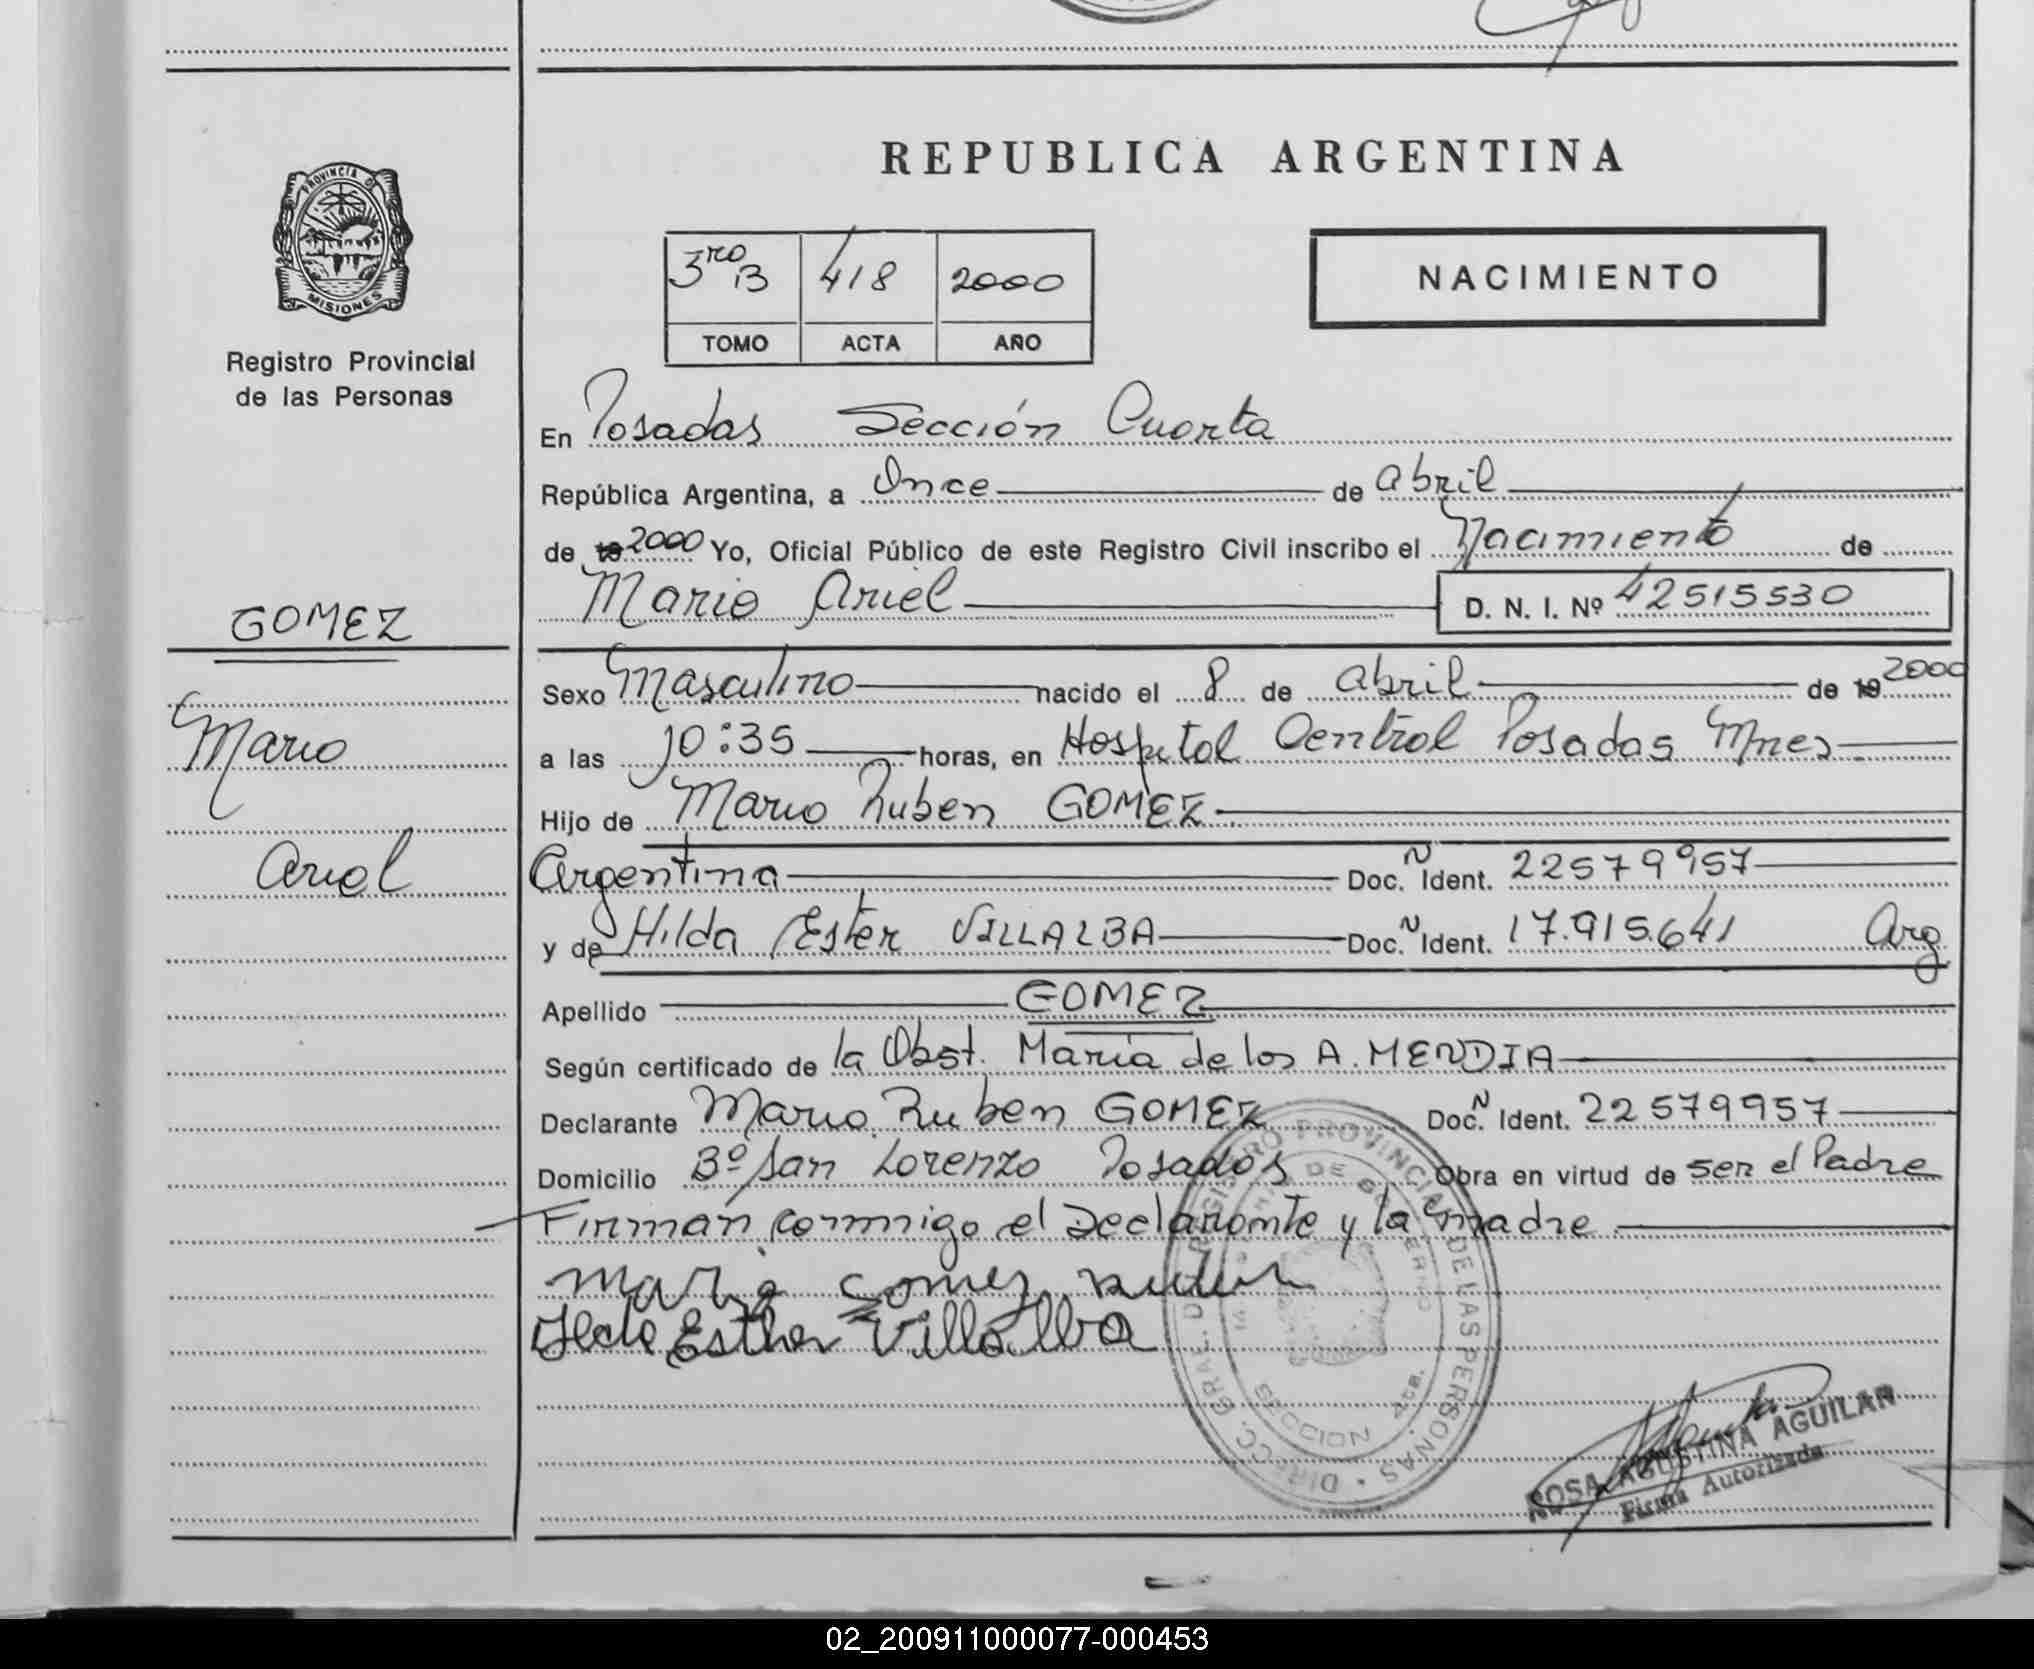 REPUBLICA ARGENTINA
PROVINCIA D
MISIONES
Registro Provincial
de las Personas
3ro B 418 2000
TOMO ACTA AÑO
NACIMIENTO
En Posadas Sección Cuarta
República Argentina, a Once de abril
de 19 2000 Yo, Oficial Público de este Registro Civil inscribo el Nacimiento de
Mario Ariel D. N. I. Nº 42515530
GOMEZ
Mario
Ariel
Sexo Masculino nacido el 8 de abril de 19 2000
a las 10:35 horas, en Hospital Central Posadas Mnes
Hijo de Mario Ruben GOMEZ
Argentina Doc. N Ident. 22579957
y de Hilda Ester VILLALBA Doc. N Ident. 17.915.641 Arg
Apellido GOMEZ
Según certificado de la Obst. María de los A. MENDIA
Declarante Mario Ruben GOMEZ Doc. N Ident. 22579957
Domicilio Bº San Lorenzo Posadas Obra en virtud de ser el Padre
Firman conmigo el Declarante y la madre
Mario Gomez Ruben
Ilda Esther Villalba
DIRECC. GRAL. DEL REGISTRO PROVINCIAL DE LAS PERSONAS
DE GOBIERNO
SECCION 4ta.
ROSA AGUSTINA AGUILAR
Firma Autorizada
02_200911000077-000453